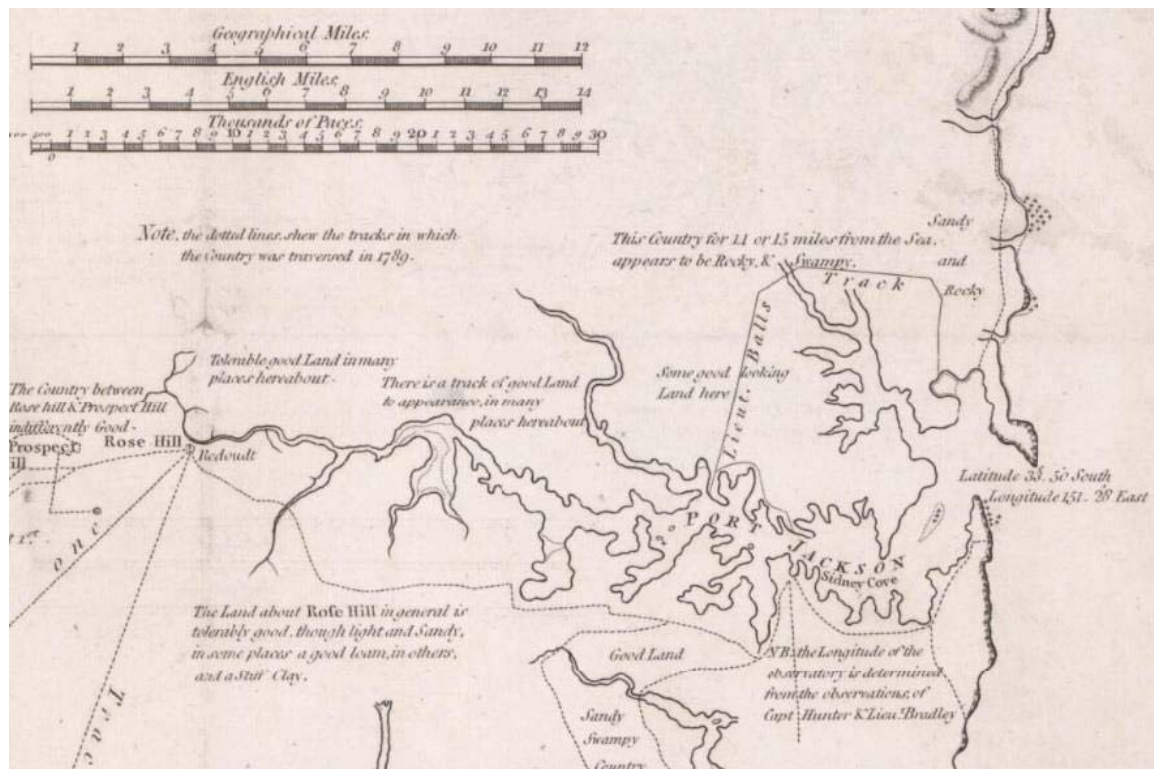 Geographical Miles.
1 2 3 4 5 6 7 8 9 10 11 12
English Miles.
1 2 3 4 5 6 7 8 9 10 11 12 13 14
Thousands of Paces.
1 2 3 4 5 6 7 8 9 10 1 2 3 4 5 6 7 8 9 20 1 2 3 4 5 6 7 8 9 30
0
Note, the dotted lines, shew the tracks in which
the Country was traversed in 1789.
This Country for 14 or 15 miles from the Sea,
appears to be Rocky, & Swampy.
Sandy
and
Rocky
Track
Lieut. Balls
Some good looking
Land here
Tolerable good Land in many
places hereabout.
There is a track of good Land
to appearance, in many
places hereabout
The Country between
Rose hill & Prospect Hill
indifferently Good.
Prospect
ill
Rose Hill
Redoubt
Latitude 33. 50 South
Longitude 151. 28 East
PORT JACKSON
Sidney Cove
The Land about Rose Hill in general is
tolerably good, though light and Sandy,
in some places a good loam, in others,
and a Stiff Clay.
Good Land
NB. the Longitude of the
observatory is determined
from the observations, of
Capt. Hunter & Lieut. Bradley
Sandy
Swampy
Country